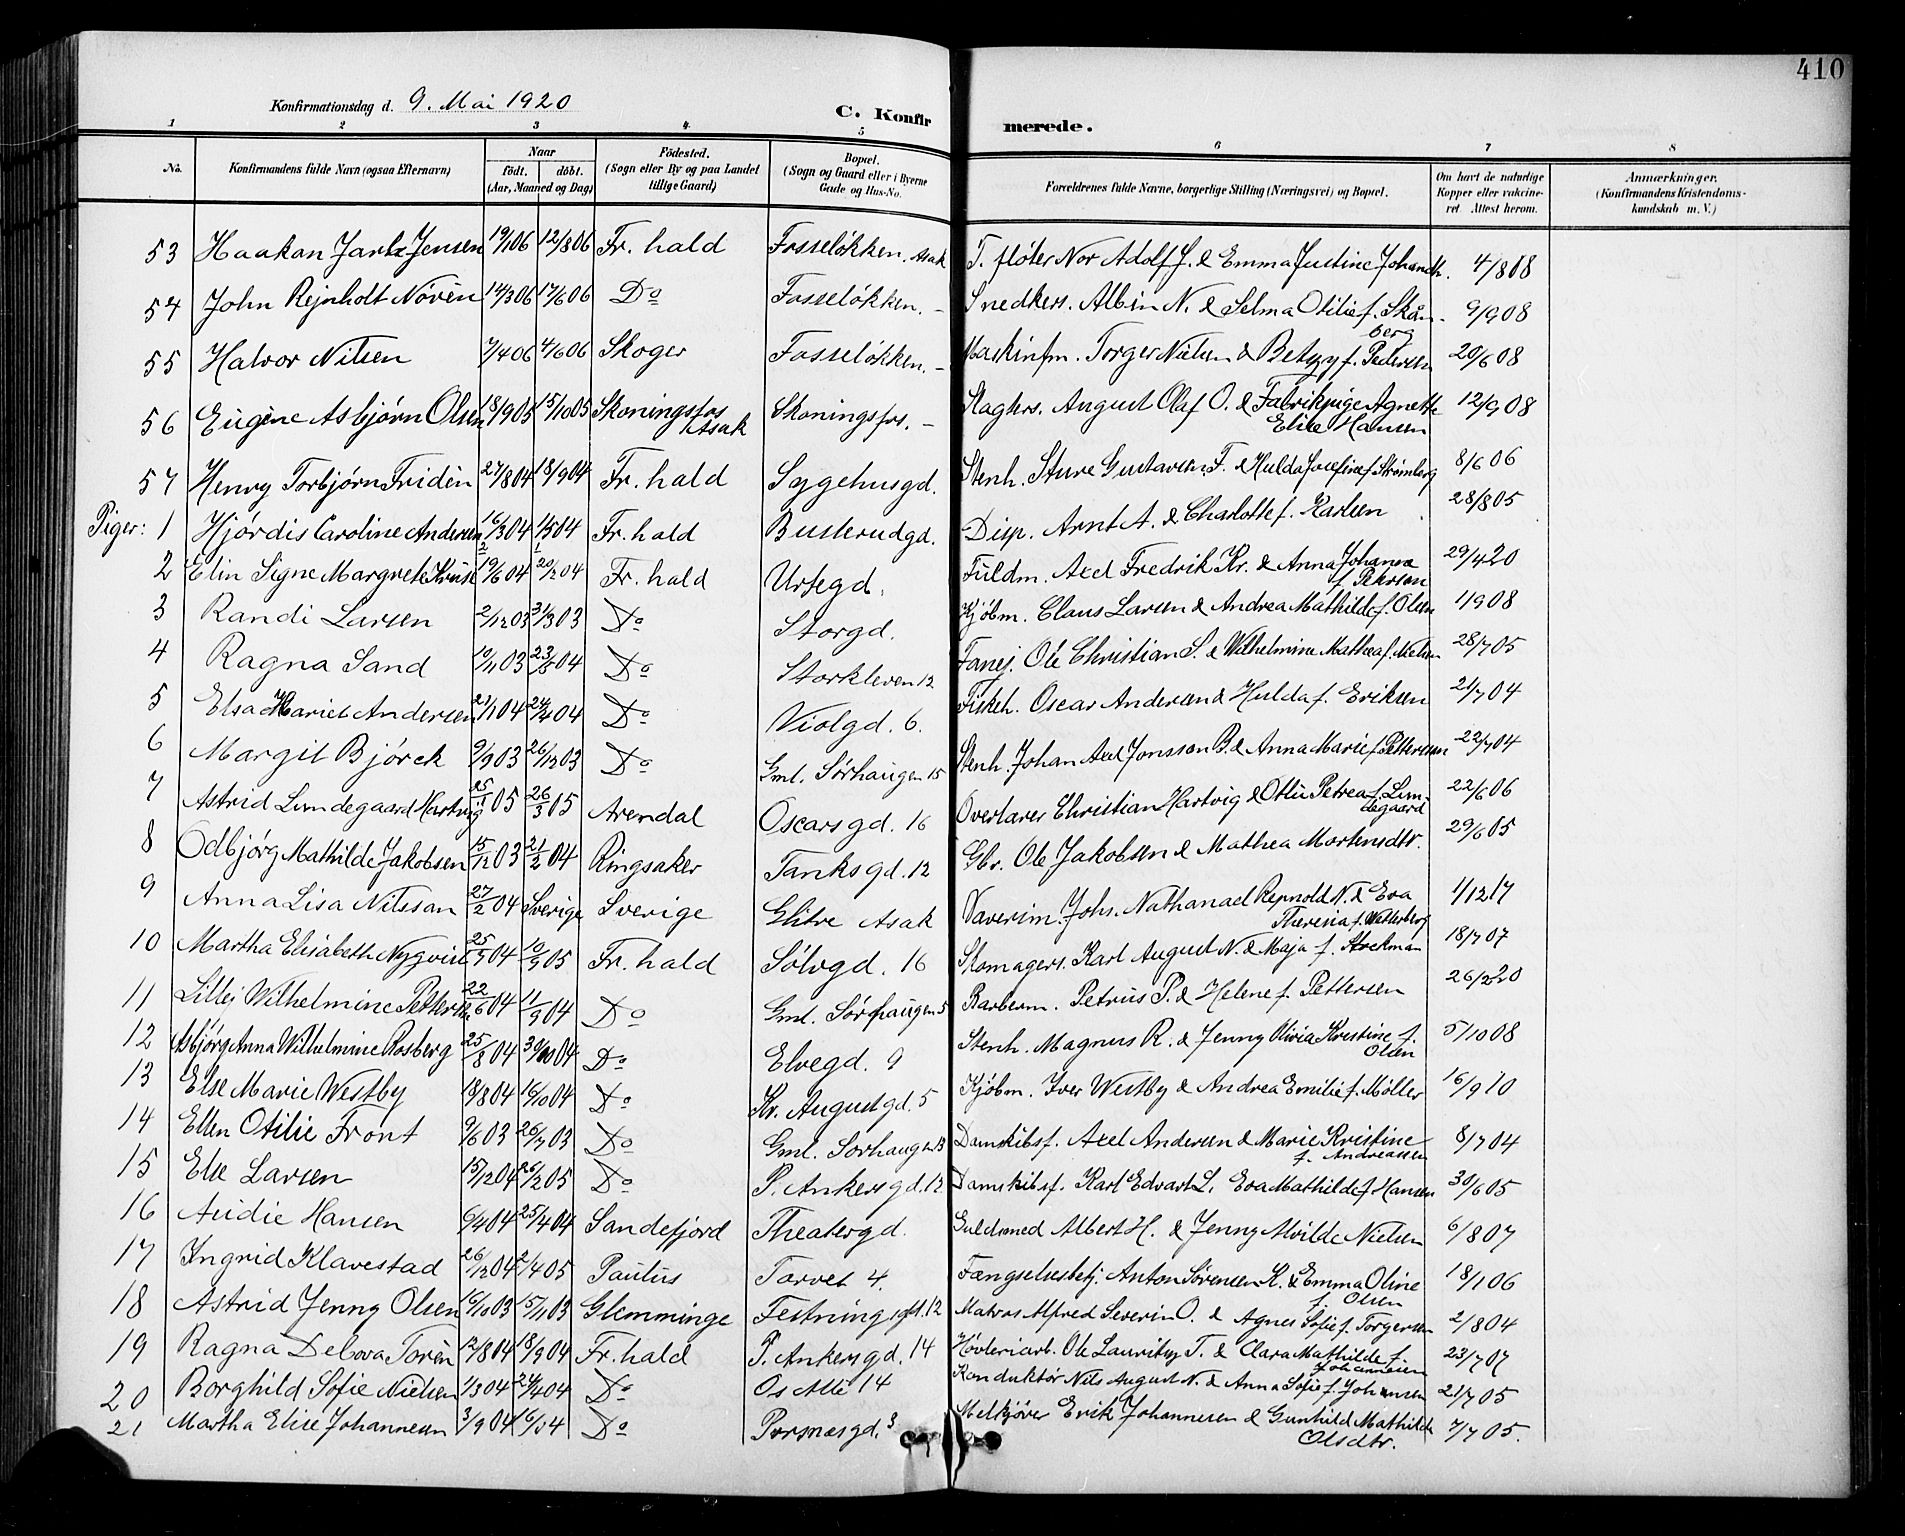 410
Konfirmationsdag d. 9. Mai 1920
C. Konfirmerede.
1 2 3 4 5 6 7 8
No. Konfirmandens fulde Navn (ogsaa Efternavn) Naar födt. döbt. (Aar, Maaned og Dag) Födested. (Sogn eller By og paa Landet tillige Gaard) Bopæl. (Sogn og Gaard eller i Byerne Gade og Hus-No. Forældrenes fulde Navne, borgerlige Stilling (Næringsvei) og Bopæl. Om havt de naturlige Kopper eller vakcineret. Attest herom. Anmærkninger. (Konfirmandens Kristendomskundskab m. V.)
53 Haakan Jarl Jensen 19/1 06 12/8 06 Fr. hald Fosseløkken. Asak T. fløter Nor Adolf J. & Emma Justine Johands. 4/8 08
54 John Rejnholdt Növén 14/3 06 17/6 06 Do Fosseløkken. - Snedkers. Albin N. & Selma Otilie f. Skånberg 9/9 08
55 Halvor Nilsen 7/4 06 4/6 06 Skoger Fosseløkken. - Maskinfm. Torger Nielsen & Betzy f. Pedersen 20/6 08
56 Eugéne Asbjørn Olsen 18/9 05 15/10 05 Skoningsfos Asak Skoningsfos. - Slagters. August Olaf O. & Fabrikpige Agnette Elise Hansen 12/9 08
57 Henry Torbjørn Fridén 27/8 04 18/9 04 Fr. hald Sygehusgd. Stenh. Sture Gustavsen F. & Hulda Josefine f. Strømberg 8/6 06
Piger: 1 Hjørdis Caroline Andersen 16/3 04 1/5 04 Fr. hald Busterudgd. Disp. Arnt A. & Charlotte f. Karlsen 28/8 05
2 Elin Signe Margrete Kruse 19/6 04 20/2 04 Fr. hald Urtegd. Fuldm. Axel Fredrik Kr. & Anna Johanna f. Peterson 29/4 20
3 Randi Larsen 2/12 03 31/3 03 Do Storgd. Kjøbm. Claus Larsen & Andrea Mathilde f. Olsen 1/9 08
4 Ragna Sand 10/11 03 23/5 04 Do Storkleven 12 Ole Christian S. & Wilhelmine Mathea f. Nielsen 28/7 05
5 Elsa Hariet Andersen 21/1 04 24/4 04 Do Violgd. 6. Fiskeh. Oscar Andersen & Hulda f. Eriksen 21/7 04
6 Margit Bjørck 9/9 03 26/12 03 Do Gml. Sørhaugen 15 Stenh. Johan Axel Jonsson B. & Anna Marie f. Pettersen 22/7 04
7 Astrid Lundegaard Hartvig 25/1 05 26/3 05 Arendal Oscarsgd. 16 Overlærer Christian Hartvig & Ottie Petrea f. Lundegaard 22/6 06
8 Odbjørg Mathilde Jakobsen 15/12 03 21/2 04 Ringsaker Tanksgd. 12 Gbr. Ole Jakobsen & Mathea Mortensdtr. 29/6 05
9 Anna Lisa Nilsson 27/2 04 Sverige Sverige Glitre Asak Væverim. Johs. Nathanael Reynold N. & Eva Theresia f. Wetterberg 1/12 17
10 Martha Elisabeth Nyqvist 25/9 04 10/9 05 Fr. hald Sølvgd. 16 Skomagers. Karl August N. & Maja f. Strekman 18/7 07
11 Lillej Wilhelmine Pettersen 22/6 04 11/9 04 Do Gml. Sørhaugen 5 Barberm. Petrus P. & Helene f. Pettersen 26/2 20
12 Asbjørg Anna Wilhelmine Rosberg 25/8 04 30/10 04 Do Elvegd. 9 Stenh. Magnus R. & Jenny Olivia Kristine f. Olsen 5/10 08
13 Else Marie Westby 18/8 04 16/10 04 Do Kr. Augustgd. 5 Kjøbm. Iver Westby & Andrea Emilie f. Møller 16/9 10
14 Ellen Otilie Front 9/6 03 26/7 03 Do Gml. Sørhaugen 13 Damskibsf. Axel Andersen & Marie Kristine f. Andreassen 8/7 04
15 Else Larsen 15/12 04 25/2 05 Do P. Ankersgd. 12 Damskibsf. Karl Edvart L. Eva Mathilde f. Hansen 30/6 05
16 Audie Hansen 6/2 04 25/4 04 Sandefjord Theatergd. Guldsmed Albert H. & Jenny Alvilde Nielsen 6/8 07
17 Ingrid Klavestad 26/12 04 2/4 05 Paulus Torvet 4. Fængselsbetj. Anton Sørensen K. & Emma Oline f. Olsen 18/1 06
18 Astrid Jenny Olsen 16/10 03 15/11 03 Glemminge Festningsgd. 12 Matros Alfred Severin O. & Agnes Sofie f. Torgersen 2/8 04
19 Ragna Debora Torén 12/8 04 18/9 04 Fr. hald P. Ankersgd. 14 Høvleriarb. Ole Lauritz T. & Clara Mathilde f. Johannesen 23/7 07
20 Borghild Sofie Nielsen 1/3 04 24/4 04 Do Os Allé 14 Konduktør Nils August N. & Anna Sofie f. Johansen 21/7 05
21 Martha Elise Johannesen 3/9 04 Do Porsnæsgd. 3 Melkjører Erik Johannesen & Gunhild Mathilde Olsdtr. 7/7 05.